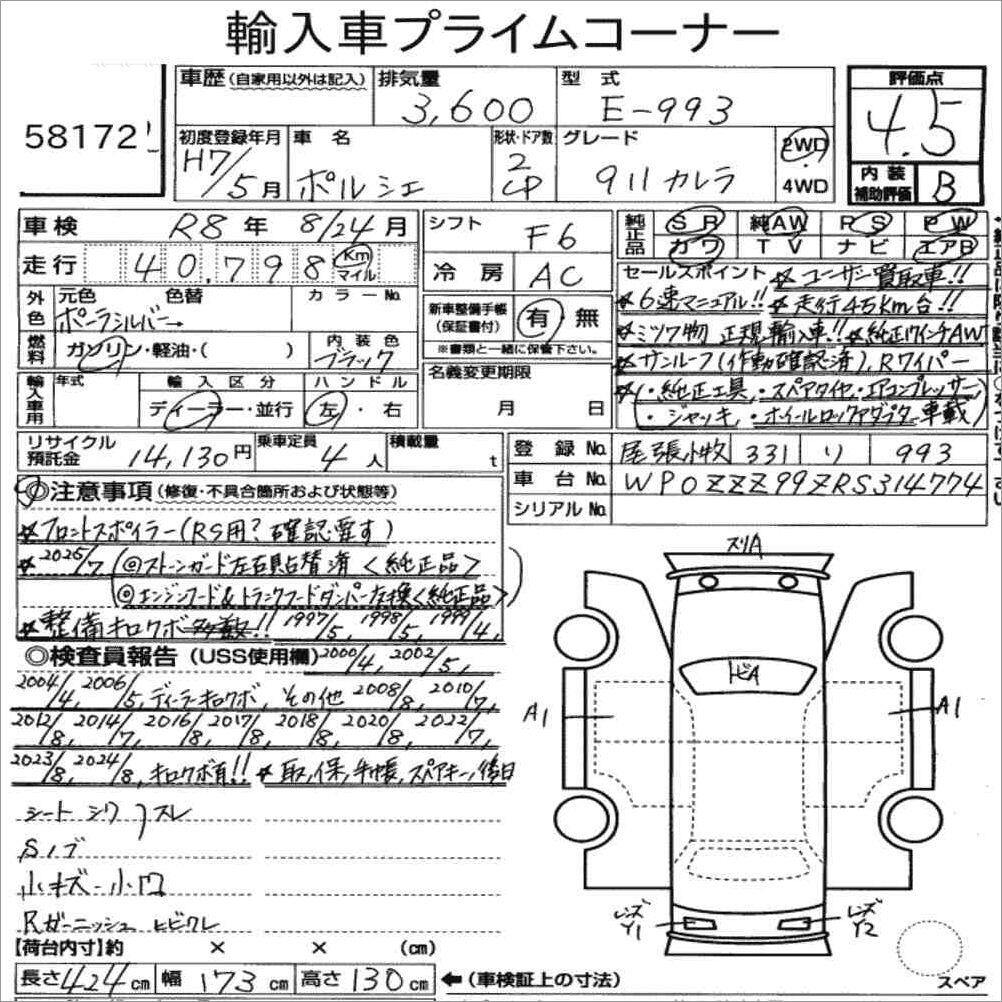 輸入車プライムコーナー
58172
車歴(自家用以外は記入) 排気量 3,600 型式 E-993 評価点 4.5
初度登録年月 H7/5月 車名 ポルシェ 形状・ドア数 2 CP グレード 911カレラ 2WD・4WD 内装補助評価 B
車検 R8年 8/24月 シフト F6 純正品 SR 純AW PS PW
カワ TV ナビ エアB
走行 40,798 Km マイル 冷房 AC
セールスポイント ★ユーザー買取車!!
★6速マニュアル!! ★走行4万km台!!
★ミツワ物 正規輸入車!! ★純正17インチAW
★サンルーフ(作動確認済), Rワイパー
★(・純正工具, ・スペアタイヤ, ・エアコンプレッサー
・ジャッキ, ・ホイールロックアダプター車載)
外色 元色 色替 カラーNo.
ポーラシルバー→
新車整備手帳(保証書付) 有・無
※書類と一緒に保管下さい。
燃料 ガソリン・軽油・( ) 内装色 ブラック
輸入車用 年式 輸入区分 ディーラー・並行 ハンドル 左・右
名義変更期限 月 日
リサイクル預託金 14,130円 乗車定員 4人 積載量 t
登録No. 尾張小牧 331 り 993
車台No. WP0ZZZ99ZRS314774
シリアルNo.
◎注意事項(修復・不具合箇所および状態等)
★フロントスポイラー(RS用?確認要す)
★2025/7 (◎ストーンガード左右貼替済<純正品>
◎エンジンフード&トランクフードダンパー交換<純正品>)
★整備キロクボ多数!! 1997/5, 1998/5, 1999/4,
◎検査員報告(USS使用欄) 2000/4, 2002/5,
2004/4, 2006/5, ディーラーキロクボ, その他 2008/8, 2010/7,
2012/8, 2014/7, 2016/8, 2017/8, 2018/8, 2020/8, 2022/7,
2023/8, 2024/8, キロクボ有!! ★取,保,手帳,スペアキー,後日
シート シワ スレ
Sノブ
小キズ-小凹
Rガーニッシュ ヒビワレ
スリA
トビA
A1
A1
レンズ Y1
レンズ Y2
スペア
【荷台内寸】約 × × (cm)
長さ 424cm 幅 173cm 高さ 130cm ←(車検証上の寸法)